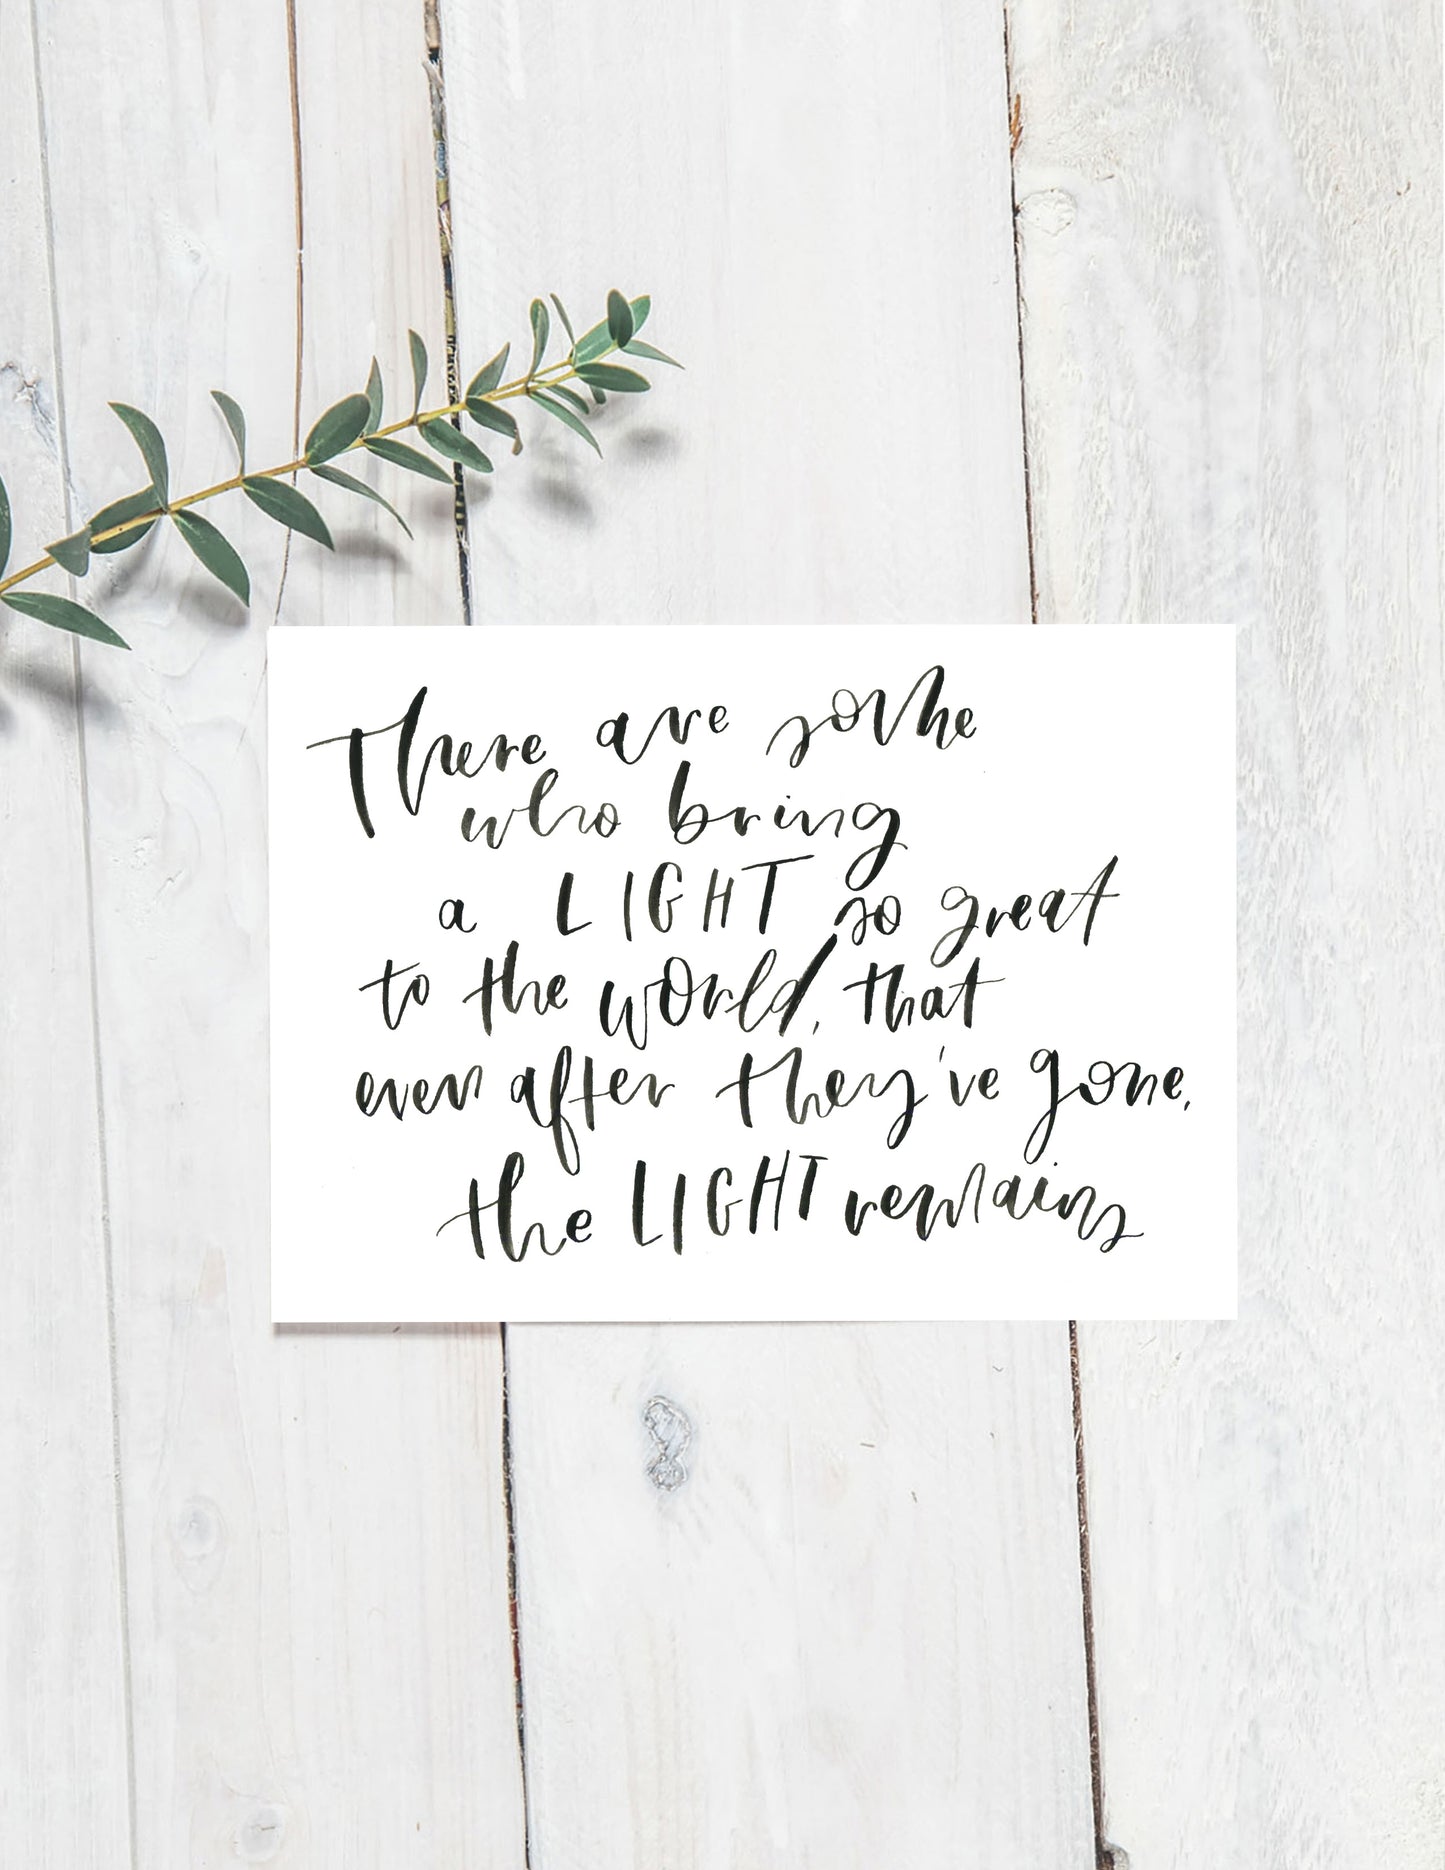 There are some
who bring
a LIGHT so great
to the world, that
even after they've gone,
the LIGHT remains